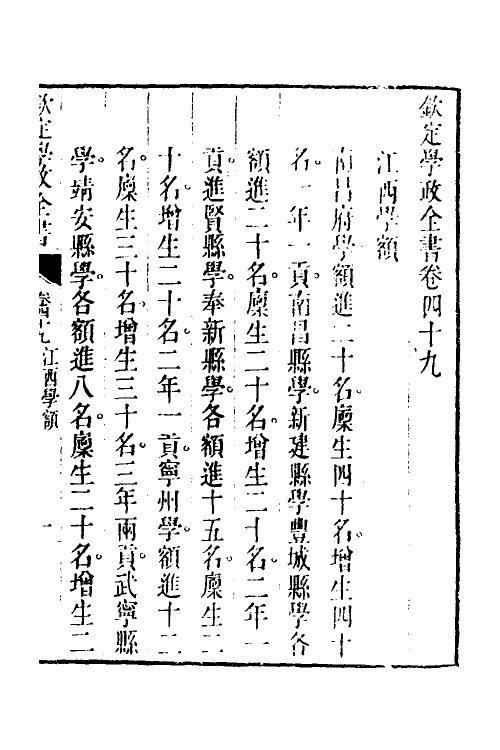 欽定學政全書卷四十九
江西學額
南昌府學額進二十名廩生四十名增生四十
名一年一貢南昌縣學新建縣學豐城縣學各
額進二十名廩生二十名增生二十名二年一
貢進賢縣學奉新縣學各額進十五名廩生二
十名增生二十名二年一貢寧州學額進十二
名廩生三十名增生三十名三年兩貢武寧縣
學靖安縣學各額進八名廩生二十名增生二
欽定學政全書 卷四十九 江西學額 一